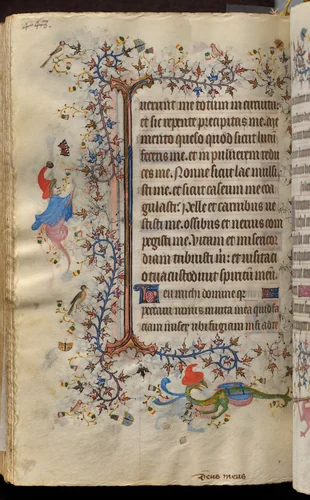 uerunt me totum in circuitu
et sic repente precipitas me. Me
mento queso quod sicut lutu
feceris me. et in puluerem redu
ces me. Nonne sicut lac mulsi
sti me. et sicut caseum me coa
gulasti. Pelle et carnibus ue
stisti me. ossibus et neruis com
pegisti me. Uitam et misericor
diam tribuisti m. et uisitati
o tua custodiuit spiritum meu
Heu michi domine qr
peccaui nimis in uita mea quid fa
ciam miser ubi fugiam nisi ad te
Deus meus